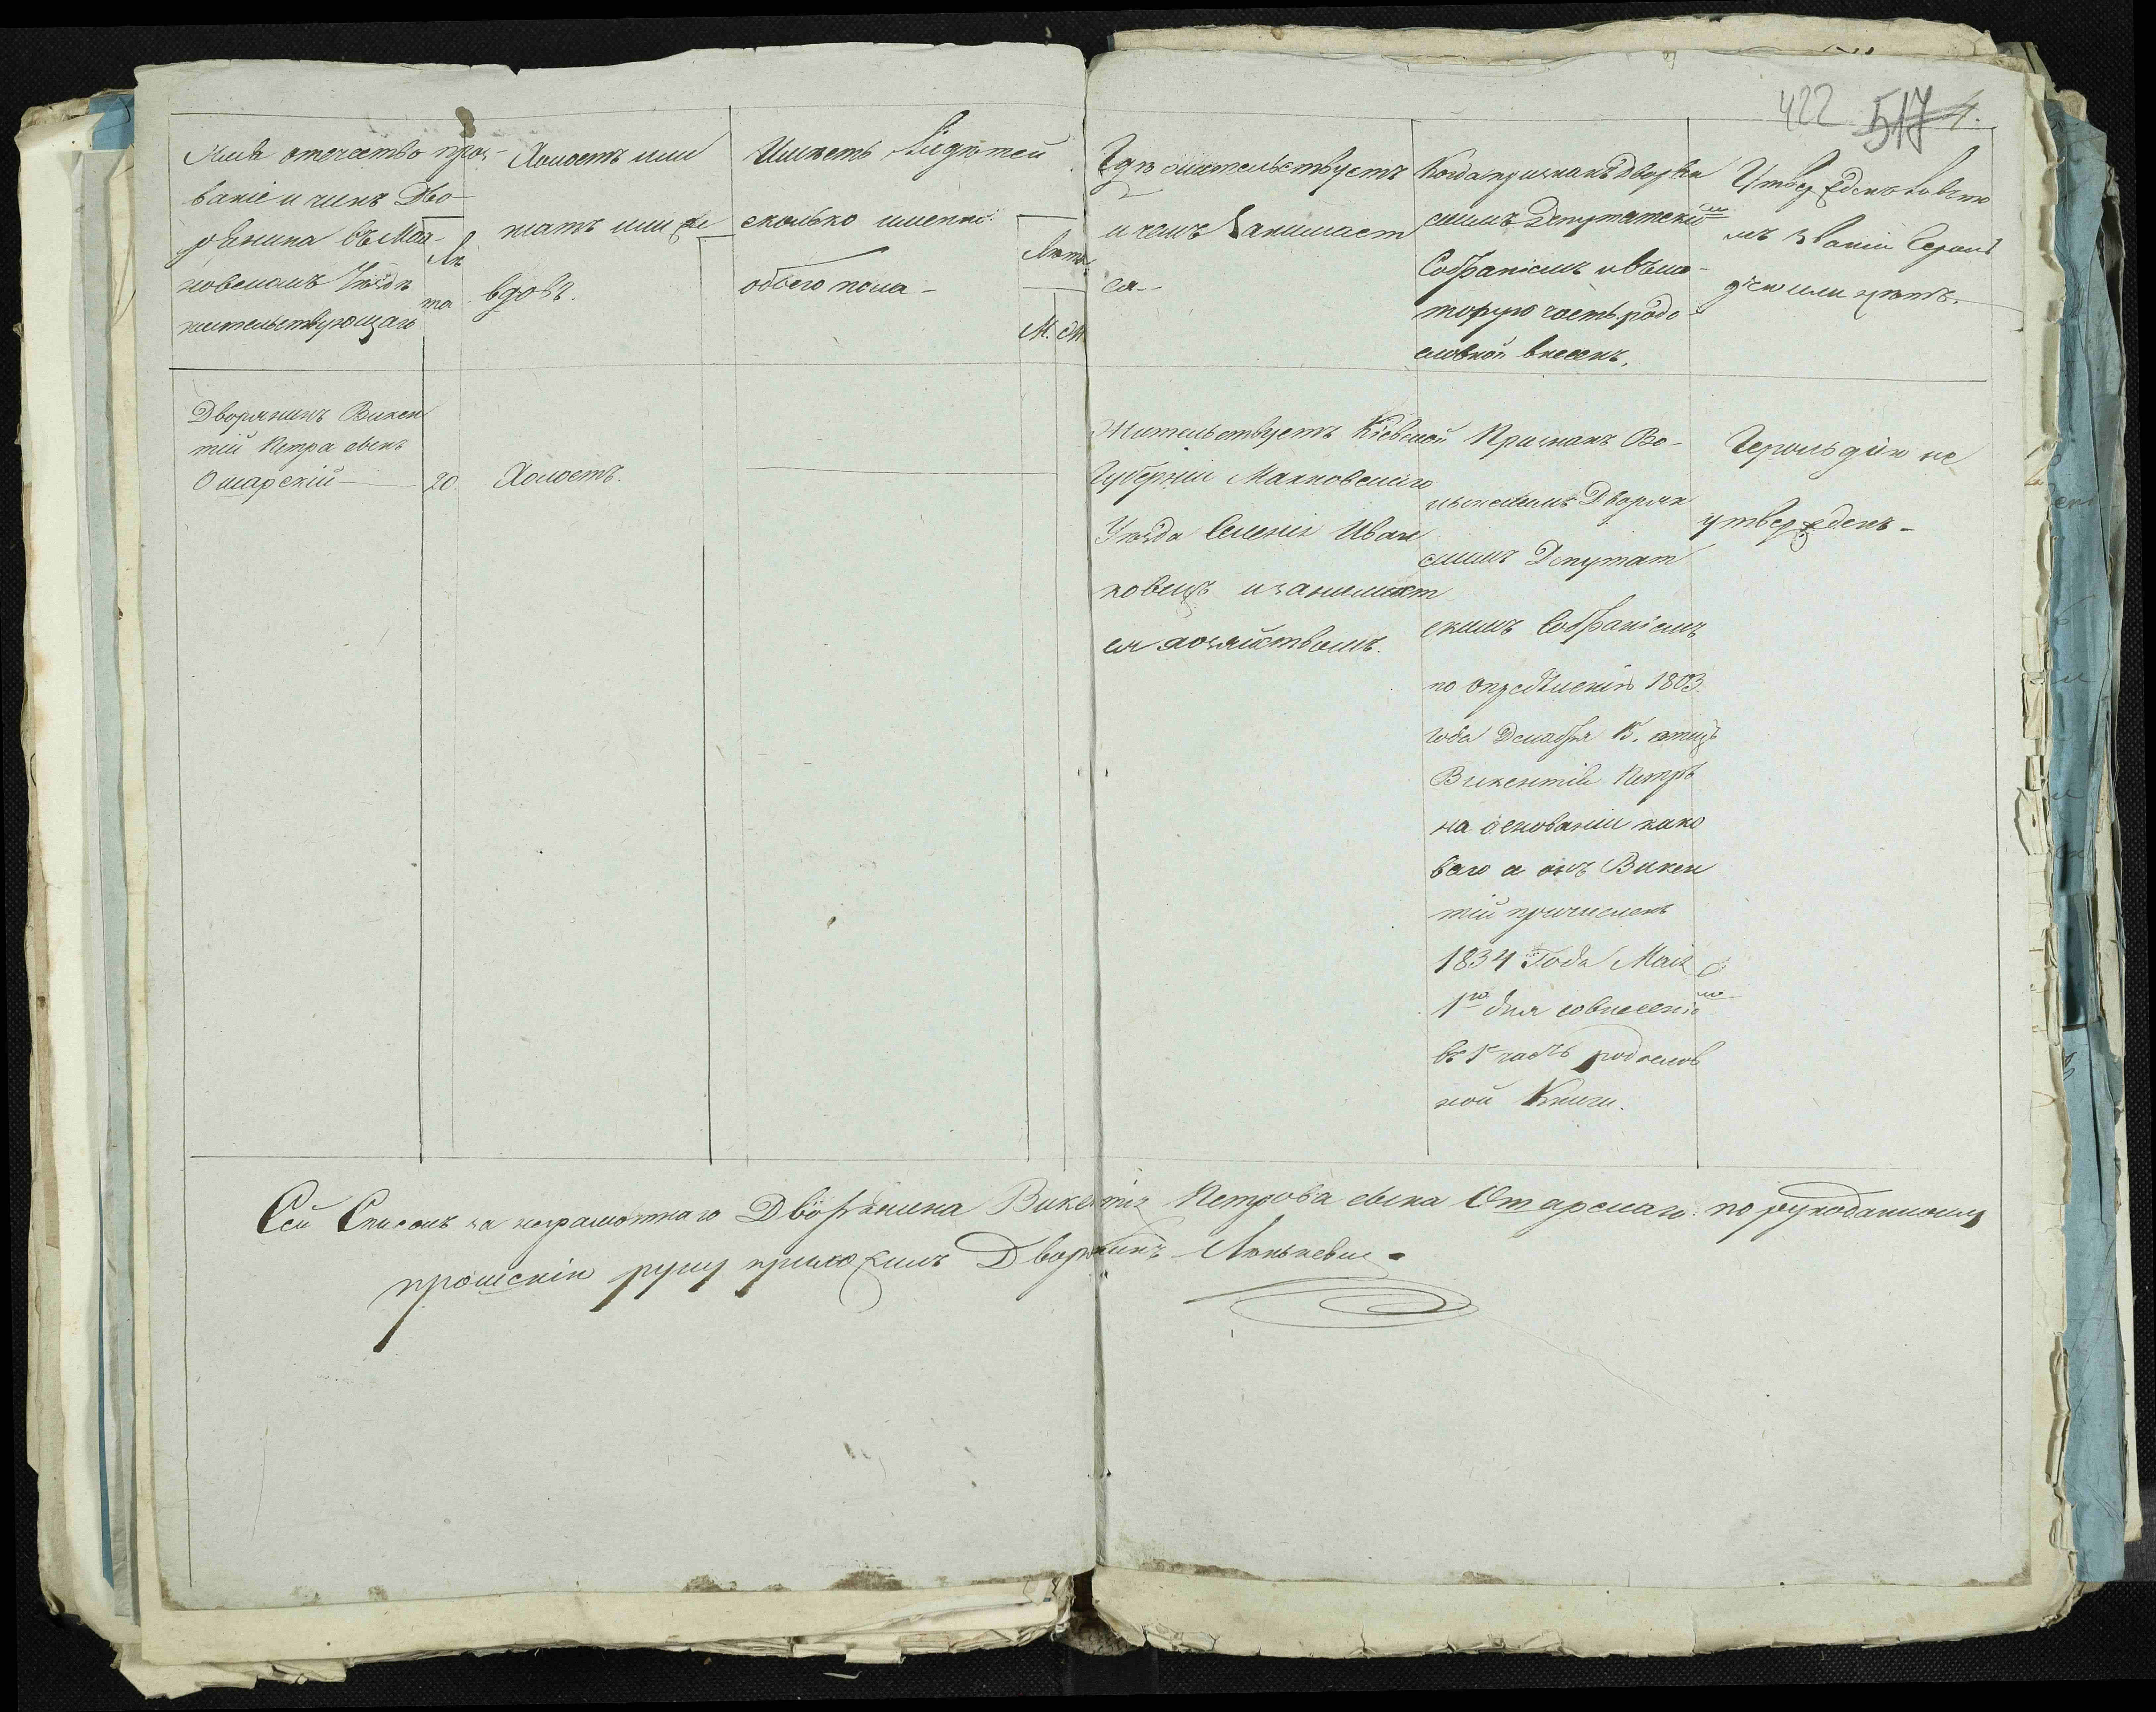 422 517 4.
Имя отечество проз-
ваніе и чинъ Дво-
рянина въ Мах-
новскомъ Уѣздѣ
жительствующаго
Лѣ
та
Холостъ или
жатъ или же
вдовъ.
Имѣетъ ли дѣтей
сколько именно
обоего пола
Лѣта
М. Ж
Гдѣ жительствуетъ
и чемъ занимает
ся
Когда признанъ Дворян
скимъ Депутатскимъ
Собраніемъ и въ ко-
торую часть родо
словной внесенъ.
Утвержденъ ли въ
мъ званіи Герольд
діею или нѣтъ.
Дворянинъ Викен
тій Петра сынъ
Отарскій
20.
Холостъ.
Жительствуетъ Кіевской
Губерніи Махновскаго
Уѣзда Селенія Иван
ковецъ и занимает
ся хозяйствомъ.
Признанъ Во-
лынскимъ Дворян
скимъ Депутат
скимъ Собраніемъ
по опредѣленію 1803
года Декабря 15. отецъ
Викентія Петръ
на основаніи како
ваго а онъ Викен
тій причисленъ
1834 Года Маія
1го дня со внесеніемъ
въ 1ю часть родослов
ной Книги.
Герольдіею не
утвержденъ
Сей Списокъ за неграмотнаго Дворянина Викентія Петрова сына Отарскаго по рукоданному
прошенію руку приложилъ Дворянинъ